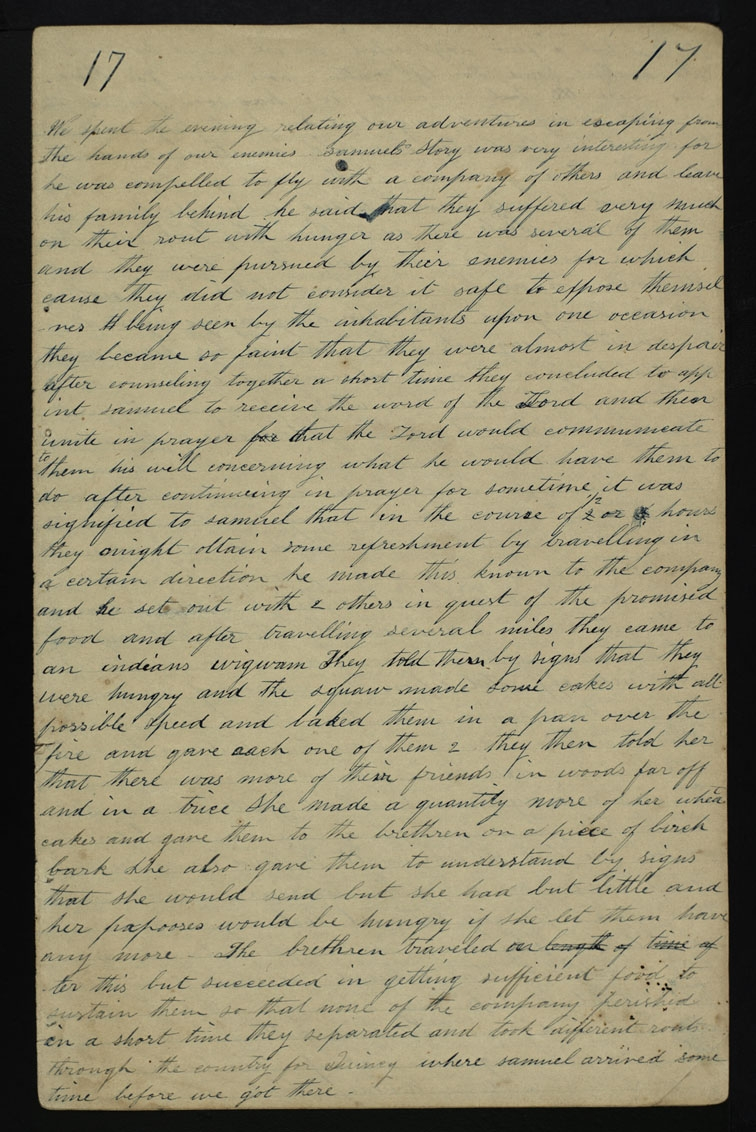 17 17
We spent the evening relating our adventures in escaping from
the hands of our enemies Samuels Story was very interesting for
he was compelled to fly with a company of others and leave
his family behind he said that they suffered very much
on their rout with hunger as there was several of them
and they were pursued by their enemies for which
cause they did not consider it safe to expose themsel
ves to being seen by the inhabitants upon one occasion
they became so faint that they were almost in despair
after counseling together a short time they concluded to app
oint samuel to receive the word of the Lord and then
unite in prayer for that the Lord would communicate
to them his will concerning what he would have them to
do after continueing in prayer for sometime it was
signified to samuel that in the course of 1/2 2 or hours
they might obtain some refreshment by travelling in
a certain direction he made this known to the company
and he set out with 2 others in quest of the promised
food and after travelling several miles they came to
an indians wigwam They told them by signs that they
were hungry and the squaw made some cakes with all
possible speed and baked them in a pan over the
fire and gave each one of them 2 they then told her
that there was more of their friends in woods far off
and in a trice She made a quantity more of her
cakes and gave them to the brethren on a piece of birch
bark she also gave them to understand by signs
that she would send but she had but little and
her papooses would be hungry if she let them have
any more - The brethren traveled on length of time af
ter this but succeeded in getting sufficient food to
sustain them so that none of the company perished
in a short time they separated and took different routs
through the country for Quincy where samuel arrived some
time before we got there -